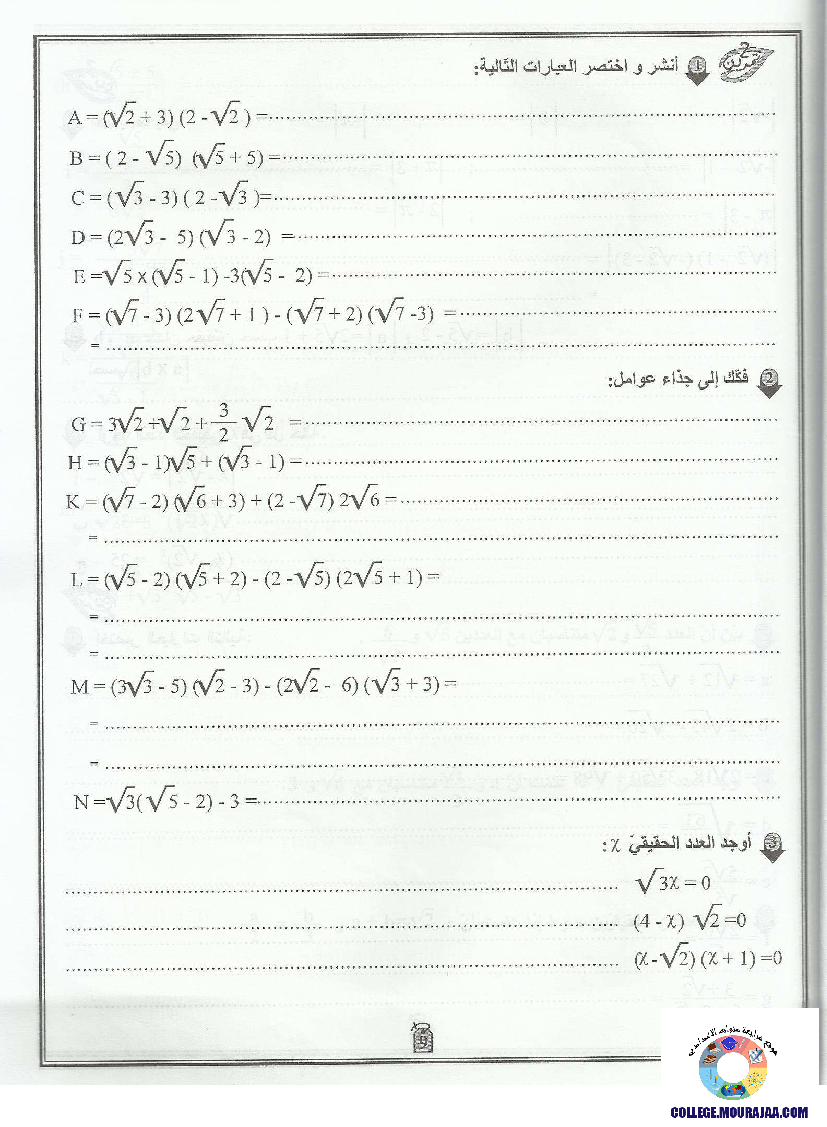 تمرين 2
1 أنشر و اختصر العبارات التالية:
A = (√2 + 3) (2 - √2 ) =
B = ( 2 - √5) (√5 + 5) =
C = (√3 - 3) ( 2 -√3 )=
D = (2√3 - 5) (√3 - 2) =
E =√5 x (√5 - 1) -3(√5 - 2) =
F = (√7 - 3) (2√7 + 1 ) - (√7 + 2) (√7 -3) =
=
2 فكّك إلى جذاء عوامل:
G = 3√2 +√2 + 3/2 √2 =
H = (√3 - 1)√5 + (√3 - 1) =
K = (√7 - 2) (√6 + 3) + (2 -√7) 2√6 =
=
L = (√5 - 2) (√5 + 2) - (2 -√5) (2√5 + 1) =
=
=
M = (3√3 - 5) (√2 - 3) - (2√2 - 6) (√3 + 3) =
=
=
N =√3(√5 - 2) - 3 =
3 أوجد العدد الحقيقيّ χ :
√3χ = 0
(4 - χ) √2 =0
(χ -√2) (χ + 1) =0
9
موقع مراجعة
COLLEGE.MOURAJAA.COM